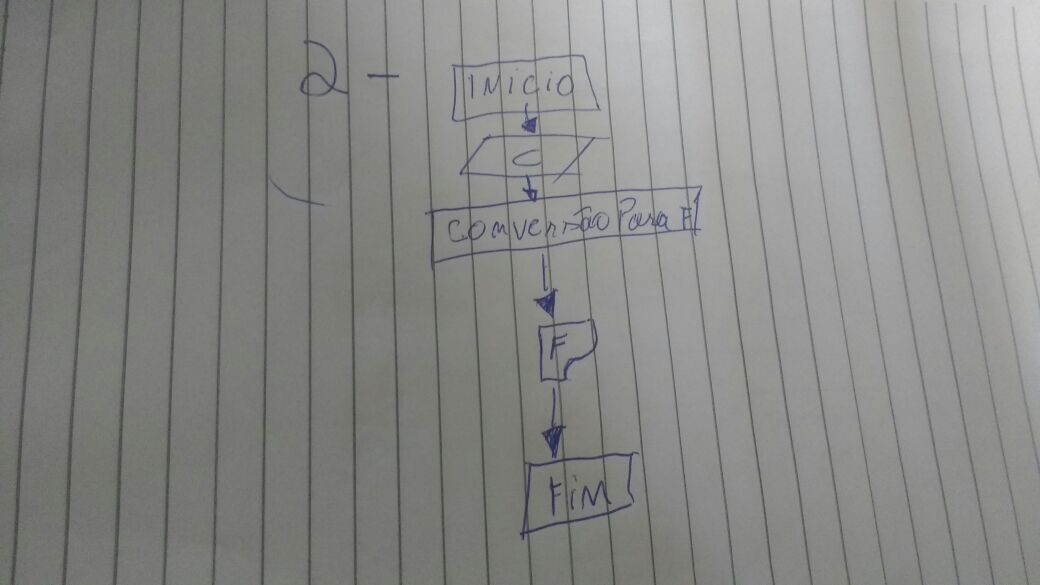 2 -
INICIO
C
CONVERSÃO Para F
F
FiM